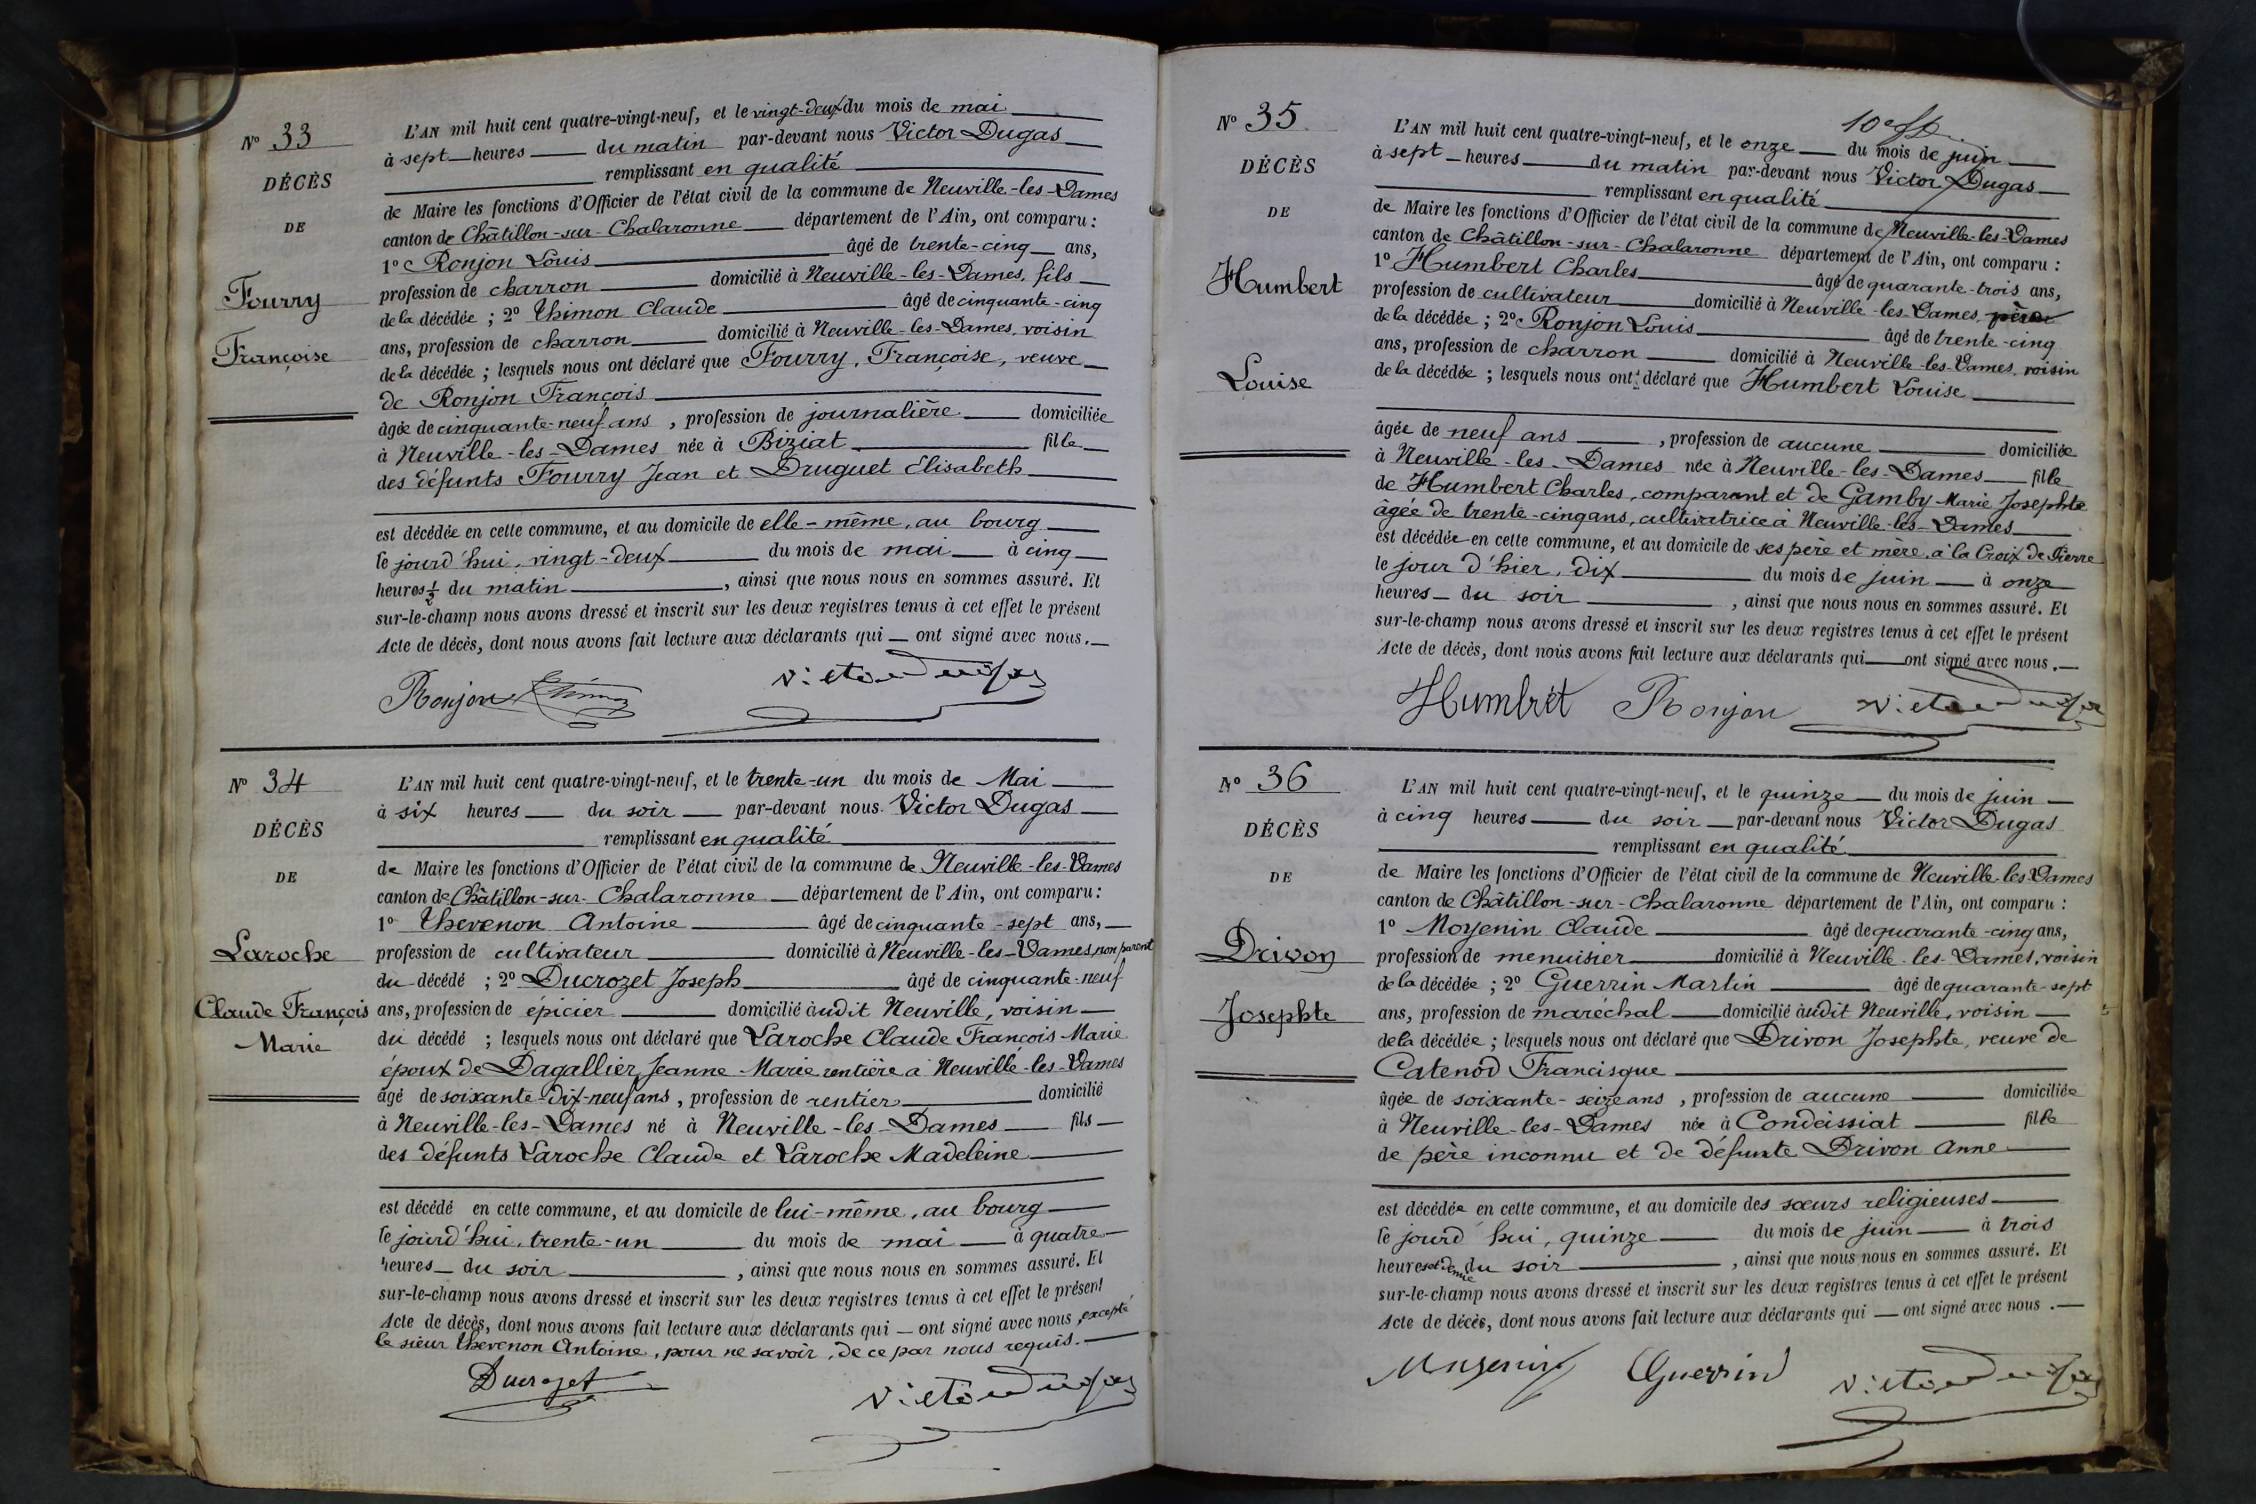 N° 33
DÉCÈS
DE
Fourry
Françoise
L'AN mil huit cent quatre-vingt-neuf, et le vingt-deux du mois de mai
à sept heures du matin par-devant nous Victor Dugas
remplissant en qualité
de Maire les fonctions d'Officier de l'état civil de la commune de Neuville-les-Dames
canton de Châtillon-sur-Chalaronne département de l'Ain, ont comparu :
1° Ronjon Louis âgé de trente-cinq ans,
profession de charron domicilié à Neuville-les-Dames, fils
de la décédée ; 2° Thimon Claude âgé de cinquante-cinq
ans, profession de charron domicilié à Neuville-les-Dames, voisin
de la décédée ; lesquels nous ont déclaré que Fourry, Françoise, veuve
de Ronjon François
âgée de cinquante-neuf ans , profession de journalière domiciliée
à Neuville-les-Dames née à Biziat fille
des défunts Fourry Jean et Druguet Elisabeth
est décédée en cette commune, et au domicile de elle-même, au bourg
le jourd'hui, vingt-deux du mois de mai à cinq
heures ½ du matin , ainsi que nous nous en sommes assuré. Et
sur-le-champ nous avons dressé et inscrit sur les deux registres tenus à cet effet le présent
Acte de décès, dont nous avons fait lecture aux déclarants qui ont signé avec nous.
Ronjon Thimon Victor Dugas
N° 34
DÉCÈS
DE
Laroche
Claude François
Marie
L'AN mil huit cent quatre-vingt-neuf, et le trente-un du mois de Mai
à six heures du soir par-devant nous Victor Dugas
remplissant en qualité
de Maire les fonctions d'Officier de l'état civil de la commune de Neuville-les-Dames
canton de Châtillon-sur-Chalaronne département de l'Ain, ont comparu :
1° Thevenon Antoine âgé de cinquante-sept ans,
profession de cultivateur domicilié à Neuville-les-Dames, non parent
du décédé ; 2° Ducrozet Joseph âgé de cinquante-neuf
ans, profession de épicier domicilié àudit Neuville, voisin
du décédé ; lesquels nous ont déclaré que Laroche Claude François Marie
époux de Dagallier Jeanne-Marie rentière à Neuville-les-Dames
âgé de soixante-dix-neuf ans , profession de rentier domicilié
à Neuville-les-Dames né à Neuville-les-Dames fils
des défunts Laroche Claude et Laroche Madeleine
est décédé en cette commune, et au domicile de lui-même, au bourg
le jourd'hui, trente-un du mois de mai à quatre
heures du soir , ainsi que nous nous en sommes assuré. Et
sur-le-champ nous avons dressé et inscrit sur les deux registres tenus à cet effet le présent
Acte de décès, dont nous avons fait lecture aux déclarants qui ont signé avec nous, excepté
le sieur Thevenon Antoine, pour ne savoir, de ce par nous requis.
Ducrozet Victor Dugas
N° 35
DÉCÈS
DE
Humbert
Louise
L'AN mil huit cent quatre-vingt-neuf, et le onze du mois de juin
à sept heures du matin par-devant nous Victor Dugas
remplissant en qualité
de Maire les fonctions d'Officier de l'état civil de la commune de Neuville-les-Dames
canton de Châtillon-sur-Chalaronne département de l'Ain, ont comparu :
1° Humbert Charles âgé de quarante-trois ans,
profession de cultivateur domicilié à Neuville-les-Dames, père
de la décédée ; 2° Ronjon Louis âgé de trente-cinq
ans, profession de charron domicilié à Neuville-les-Dames, voisin
de la décédée ; lesquels nous ont déclaré que Humbert Louise
âgée de neuf ans , profession de aucune domiciliée
à Neuville-les-Dames née à Neuville-les-Dames fille
de Humbert Charles, comparant et de Gamby Marie Josephte
âgée de trente-cinq ans, cultivatrice à Neuville-les-Dames
est décédée en cette commune, et au domicile de ses père et mère, à la Croix de Pierre
le jour d'hier, dix du mois de juin à onze
heures du soir , ainsi que nous nous en sommes assuré. Et
sur-le-champ nous avons dressé et inscrit sur les deux registres tenus à cet effet le présent
Acte de décès, dont nous avons fait lecture aux déclarants qui ont signé avec nous.
Humbrét Ronjon Victor Dugas
N° 36
DÉCÈS
DE
Drivon
Josephte
L'AN mil huit cent quatre-vingt-neuf, et le quinze du mois de juin
à cinq heures du soir par-devant nous Victor Dugas
remplissant en qualité
de Maire les fonctions d'Officier de l'état civil de la commune de Neuville-les-Dames
canton de Châtillon-sur-Chalaronne département de l'Ain, ont comparu :
1° Moyenin Claude âgé de quarante-cinq ans,
profession de menuisier domicilié à Neuville-les-Dames, voisin
de la décédée ; 2° Guerrin Martin âgé de quarante-sept
ans, profession de maréchal domicilié àudit Neuville, voisin
de la décédée ; lesquels nous ont déclaré que Drivon Josephte, veuve de
Catenod Francisque
âgée de soixante-seize ans , profession de aucune domiciliée
à Neuville-les-Dames née à Condeissiat fille
de père inconnu et de défunte Drivon Anne
est décédée en cette commune, et au domicile des sœurs religieuses
le jourd'hui, quinze du mois de juin à trois
heures et demie du soir , ainsi que nous nous en sommes assuré. Et
sur-le-champ nous avons dressé et inscrit sur les deux registres tenus à cet effet le présent
Acte de décès, dont nous avons fait lecture aux déclarants qui ont signé avec nous.
Moyenin Guerrin Victor Dugas